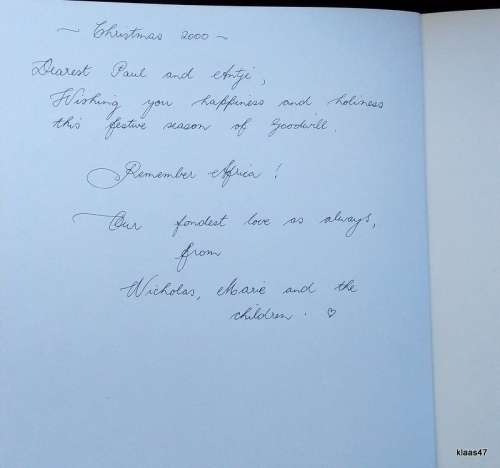 ~ Christmas 2000 ~
Dearest Paul and Antji,
Wishing you happiness and holiness
this festive season of Goodwill.
Remember Africa!
Our fondest love as always,
from
Nicholas, Marie and the
children. ♡
klaas47